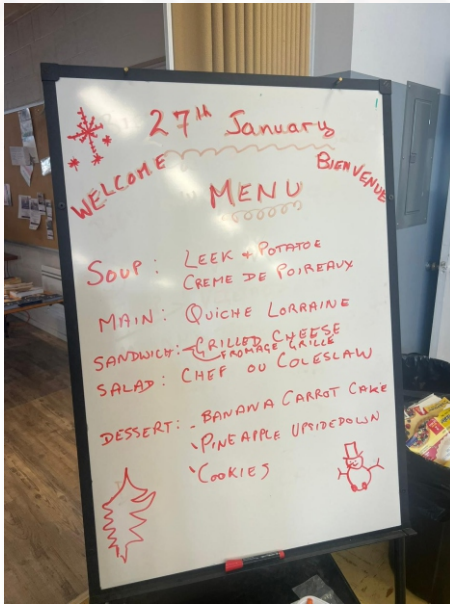 27th January
WELCOME
BIENVENUE
MENU
SOUP: LEEK + POTATOE
CREME DE POIREAUX
MAIN: QUICHE LORRAINE
SANDWICH: GRILLED CHEESE
FROMAGE GRILLE
SALAD: CHEF OU COLESLAW
DESSERT: - BANANA CARROT CAKE
- PINEAPPLE UPSIDEDOWN
- COOKIES